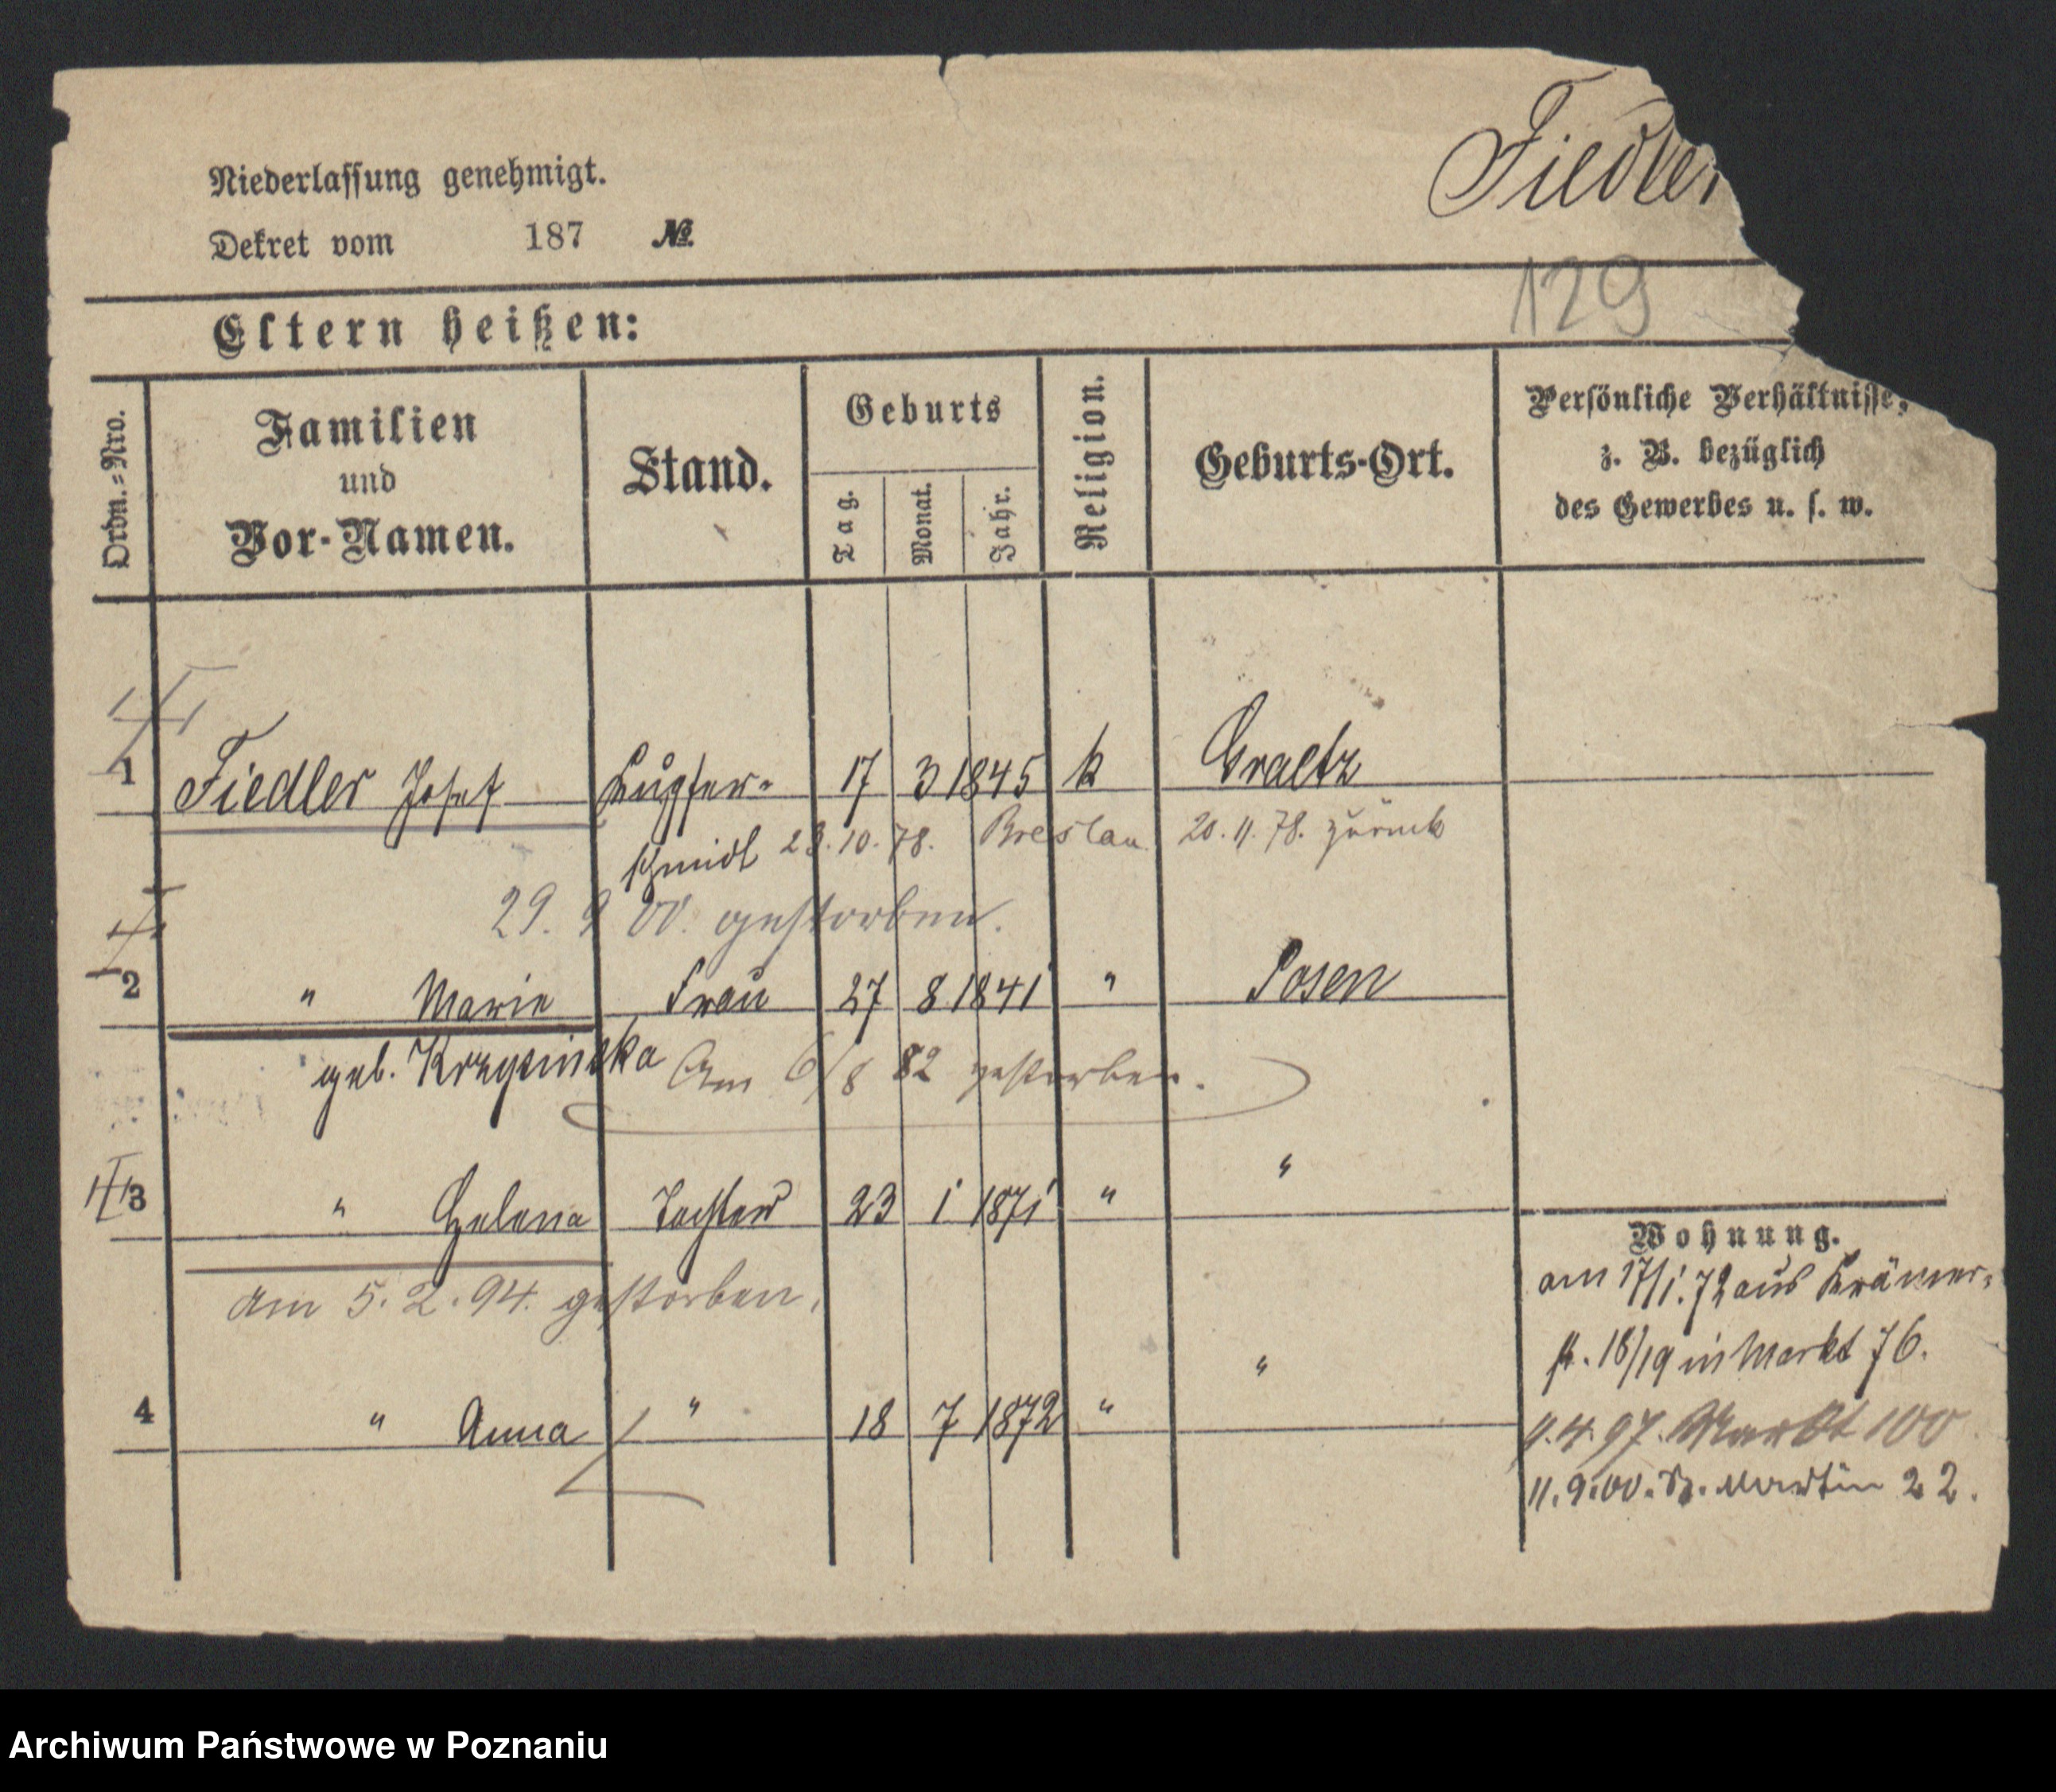 Niederlassung genehmigt.
Fiedler
Dekret vom 187 №
129
Eltern heißen:
Ordn.-Nro.
Familien
und
Vor-Namen.
Stand.
Geburts
Tag.
Monat.
Jahr.
Religion.
Geburts-Ort.
Persönliche Verhältnisse,
z. B. bezüglich
des Gewerbes u. s. w.
1 Fiedler Josef Kupfer- 17 3 1845 k Graetz
schmidt 23.10.78. Breslau 20.11.78. zurück
29. 9 00. gestorben.
2 " Marie Frau 27 8 1841 " Posen
geb. Krzysinska Am 6/8 82 gestorben.
3 " Helena Tochter 23 1 1871 " "
am 5.2.94. gestorben.
4 " Anna " 18 7 1872 " "
Wohnung.
am 17/1.72 aus Krämer-
st. 18/19 in Markt 76.
9.4.97. Markt 100
11.9.00. St. Martin 22.
Archiwum Państwowe w Poznaniu